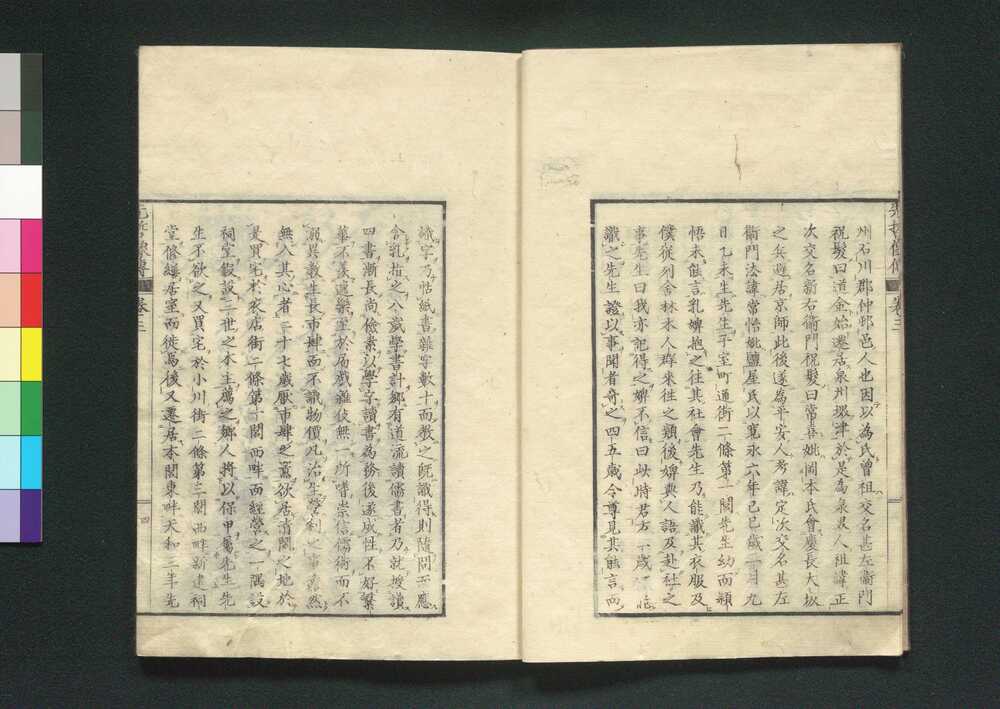 州石川郡仲邨邑人也因以為氏曾祖交名甚左衞門
祝髮曰道金始遷居泉州堺津於是為泉界人祖諱正
次交名新右衞門祝髮曰常喜妣岡本氏會慶長大坂
之兵避居京師此後遂為平安人考諱定次交名甚左
衞門法諱常怡妣鹽星氏以寬永六年己巳歲二月九
日乙未生先生乎室町通街二條第一閭先生幼而穎
悟未能言乳婢抱之往其社會先生乃能識其衣服及
僕從列舍林木人群來往之類後婢與人語及赴社之
事先生曰我亦記得之婢不信曰此時君方一歲
識之先生證以事聞者奇之四五歲令尊見其能言而
識字乃帖紙書雜字數十而教之旣識得則隨問而應
令乳指之八歲學書計鄉有道流讀儒書者乃就授讀
四書漸長尚儉素以學字讀書為務後遂成性不好繁
華不羨遊樂至於局戲雜伎無一所嗜崇信儒術而不
服異教生長市肆而不識物價凡治生營利之事漠然
無入其心者三十七歲厭市肆之囂欲居淸閑之地於
是買宅於衣店街二條第十閭西畔而經營之一隅設
祠堂假設二世之木主薦之鄉人將以保甲屬先生先
生不欲之又買宅於小川街二條第三閭西畔新建祠
堂脩繕居室而徙焉後又遷居本閭東畔天和三年先
卷三
卷三
四